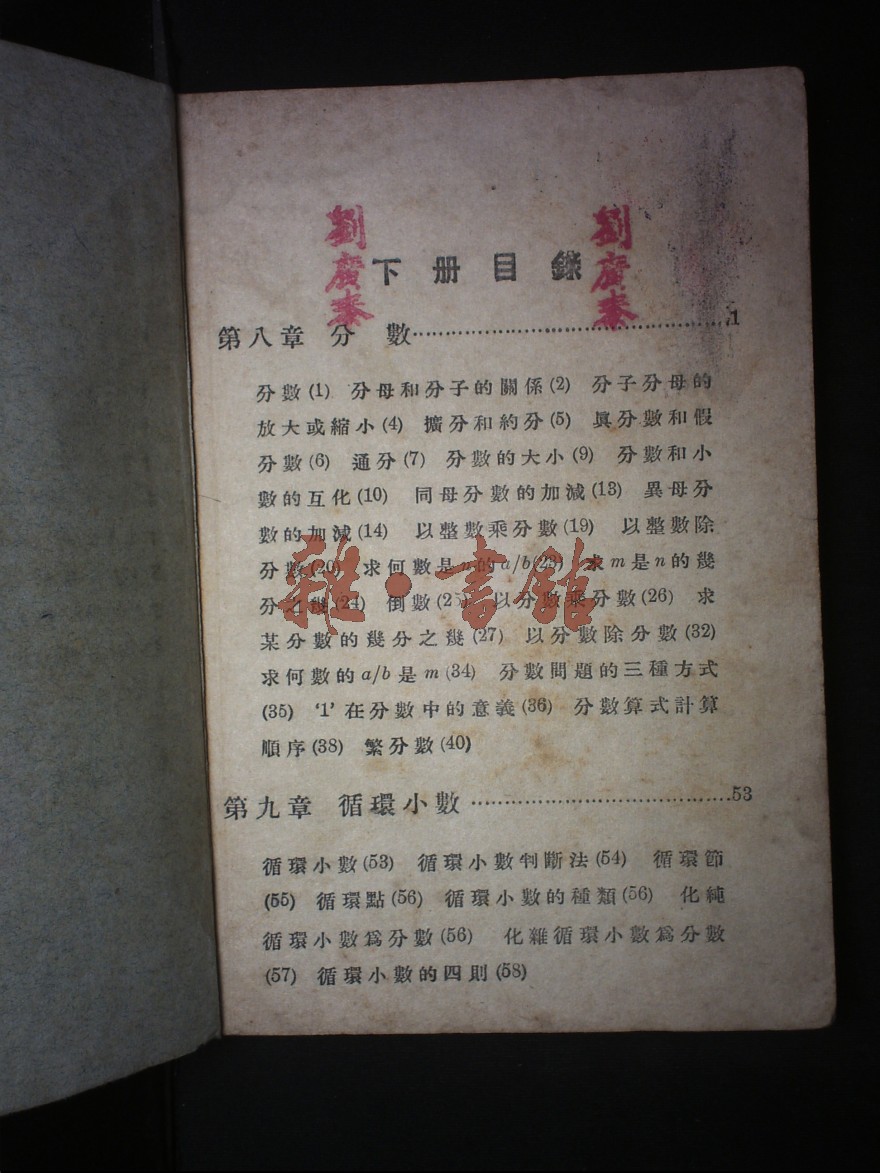 劉廣泰
劉廣泰
下册目錄
第八章 分 數……………………………………1
分數(1) 分母和分子的關係(2) 分子分母的
放大或縮小(4) 擴分和約分(5) 眞分數和假
分數(6) 通分(7) 分數的大小(9) 分數和小
數的互化(10) 同母分數的加減(13) 異母分
數的加減(14) 以整數乘分數(19) 以整數除
分數(20) 求何數是n的a/b(23) 求m是n的幾
分之幾(24) 倒數(25) 以分數乘分數(26) 求
某分數的幾分之幾(27) 以分數除分數(32)
求何數的a/b是m(34) 分數問題的三種方式
(35) ‘1’在分數中的意義(36) 分數算式計算
順序(38) 繁分數(40)
第九章 循環小數……………………………53
循環小數(53) 循環小數判斷法(54) 循環節
(55) 循環點(56) 循環小數的種類(56) 化純
循環小數爲分數(56) 化雜循環小數爲分數
(57) 循環小數的四則(58)
雜·書館